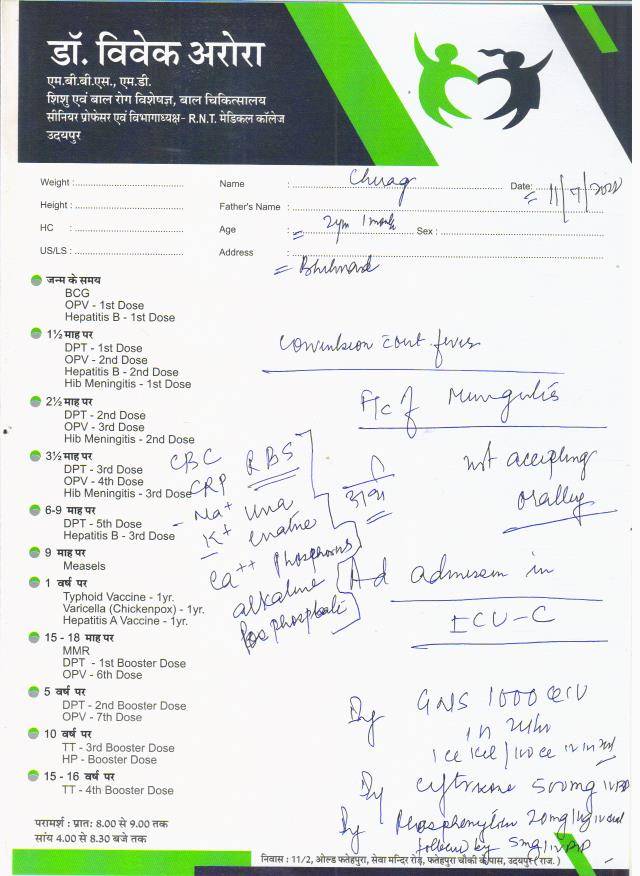 डॉ. विवेक अरोरा
एम.बी.बी.एस., एम.डी.
शिशु एवं बाल रोग विशेषज्ञ, बाल चिकित्सालय
सीनियर प्रोफेसर एवं विभागाध्यक्ष- R.N.T. मेडिकल कॉलेज
उदयपुर
Weight : Name : Chirag Date: 11/7/2022
Height : Father's Name :
HC : Age : 1 month Sex :
US/LS : Address :
जन्म के समय
BCG
OPV - 1st Dose
Hepatitis B - 1st Dose
1½ माह पर
DPT - 1st Dose
OPV - 2nd Dose
Hepatitis B - 2nd Dose
Hib Meningitis - 1st Dose
2½ माह पर
DPT - 2nd Dose
OPV - 3rd Dose
Hib Meningitis - 2nd Dose
3½ माह पर
DPT - 3rd Dose
OPV - 4th Dose
Hib Meningitis - 3rd Dose
6-9 माह पर
DPT - 5th Dose
Hepatitis B - 3rd Dose
9 माह पर
Measels
1 वर्ष पर
Typhoid Vaccine - 1yr.
Varicella (Chickenpox) - 1yr.
Hepatitis A Vaccine - 1yr.
15 - 18 माह पर
MMR
DPT - 1st Booster Dose
OPV - 6th Dose
5 वर्ष पर
DPT - 2nd Booster Dose
OPV - 7th Dose
10 वर्ष पर
TT - 3rd Booster Dose
HP - Booster Dose
15 - 16 वर्ष पर
TT - 4th Booster Dose
fever
not accepting
orally
CBC RBS
CRP
Na+
K+
Ca++
Ad admission in
ICU-C
1000
500mg
20mg/kg
followed by 5mg
परामर्श : प्रात: 8.00 से 9.00 तक
सांय 4.00 से 8.30 बजे तक
निवास : 11/2, ओल्ड फतेहपुरा, सेवा मन्दिर रोड़, फतेहपुरा चौकी के पास, उदयपुर ( राज. )